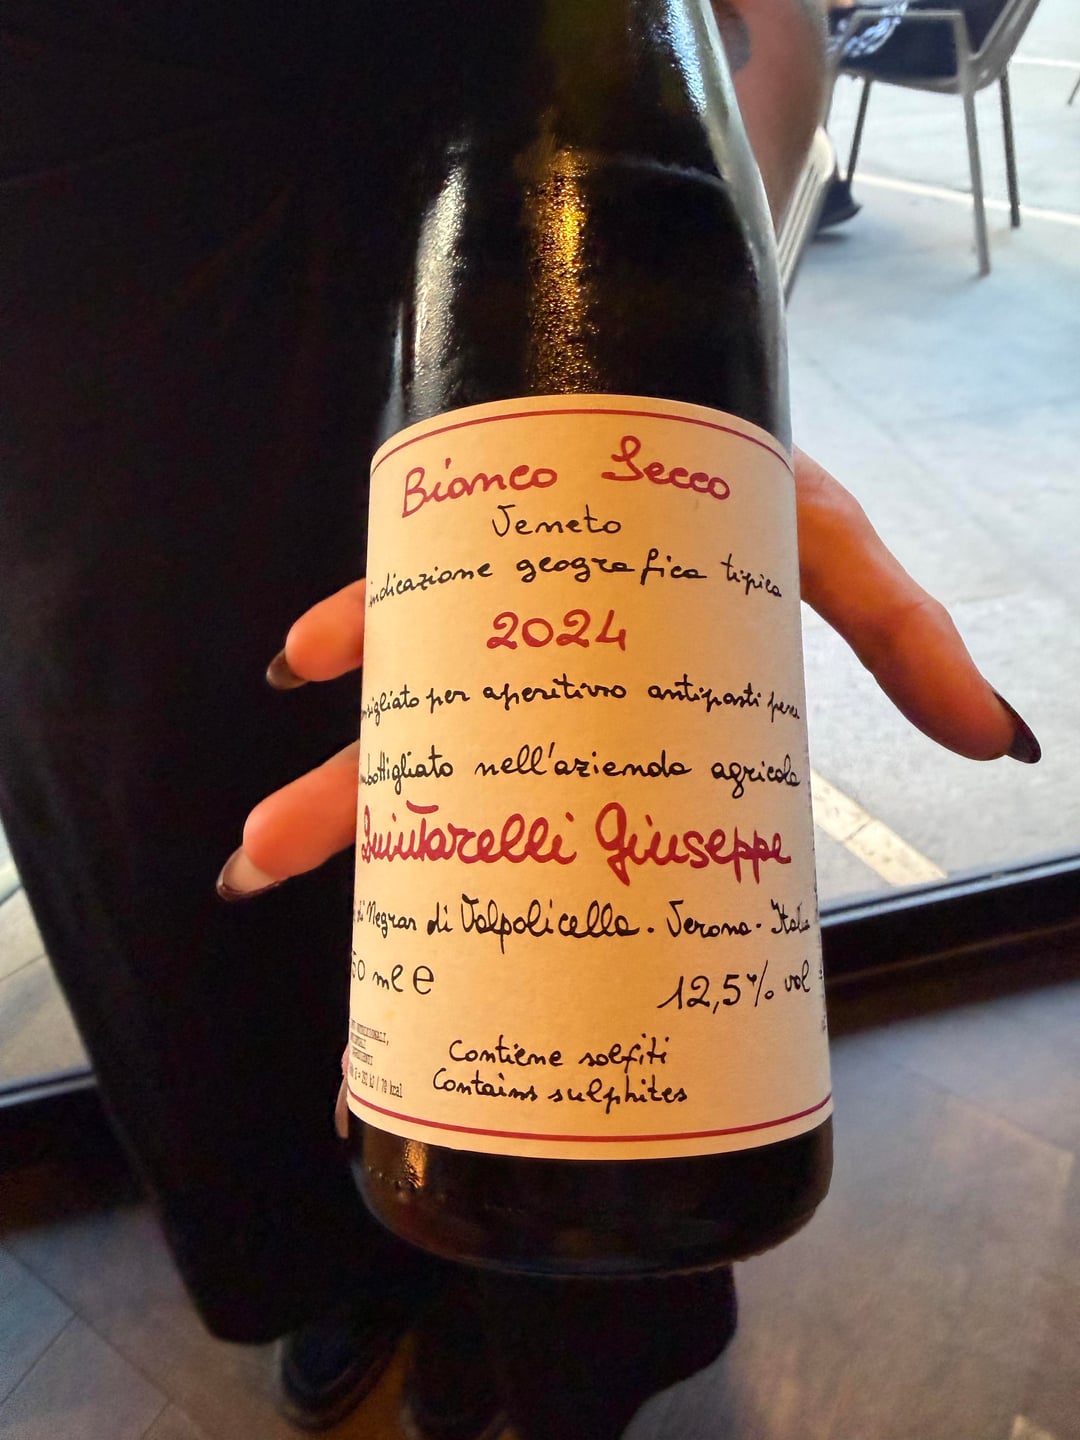 Bianco Secco
Veneto
indicazione geografica tipica
2024
nsigliato per aperitivo antipasti pesce
imbottigliato nell'azienda agricola
Quintarelli Giuseppe
di Negrar di Valpolicella. Verona. Italia
50 ml e
12,5% vol
Contiene solfiti
Contains sulphites
kcal